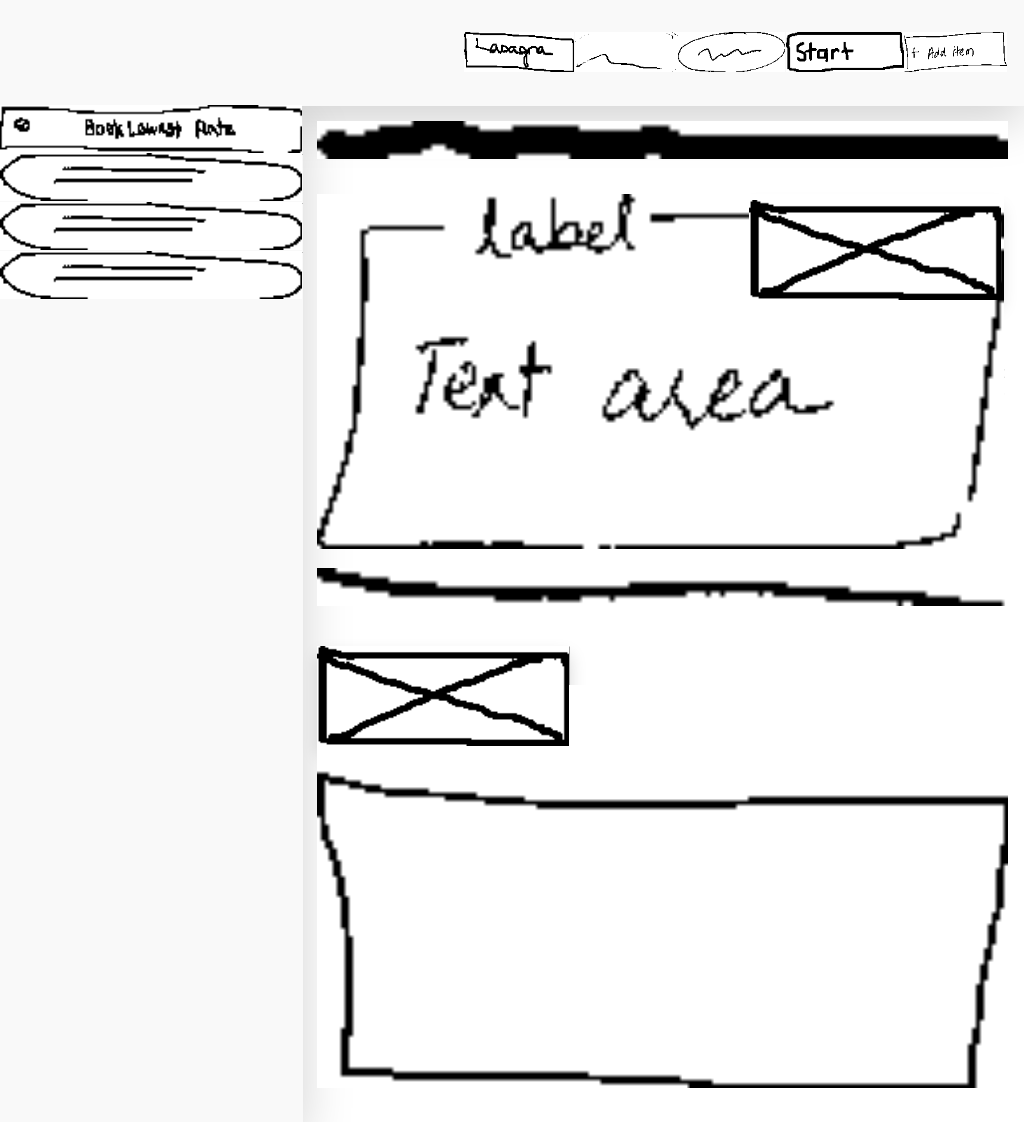 Lasagna
Start
+ Add item
Book Lowest Rate
label
Text area